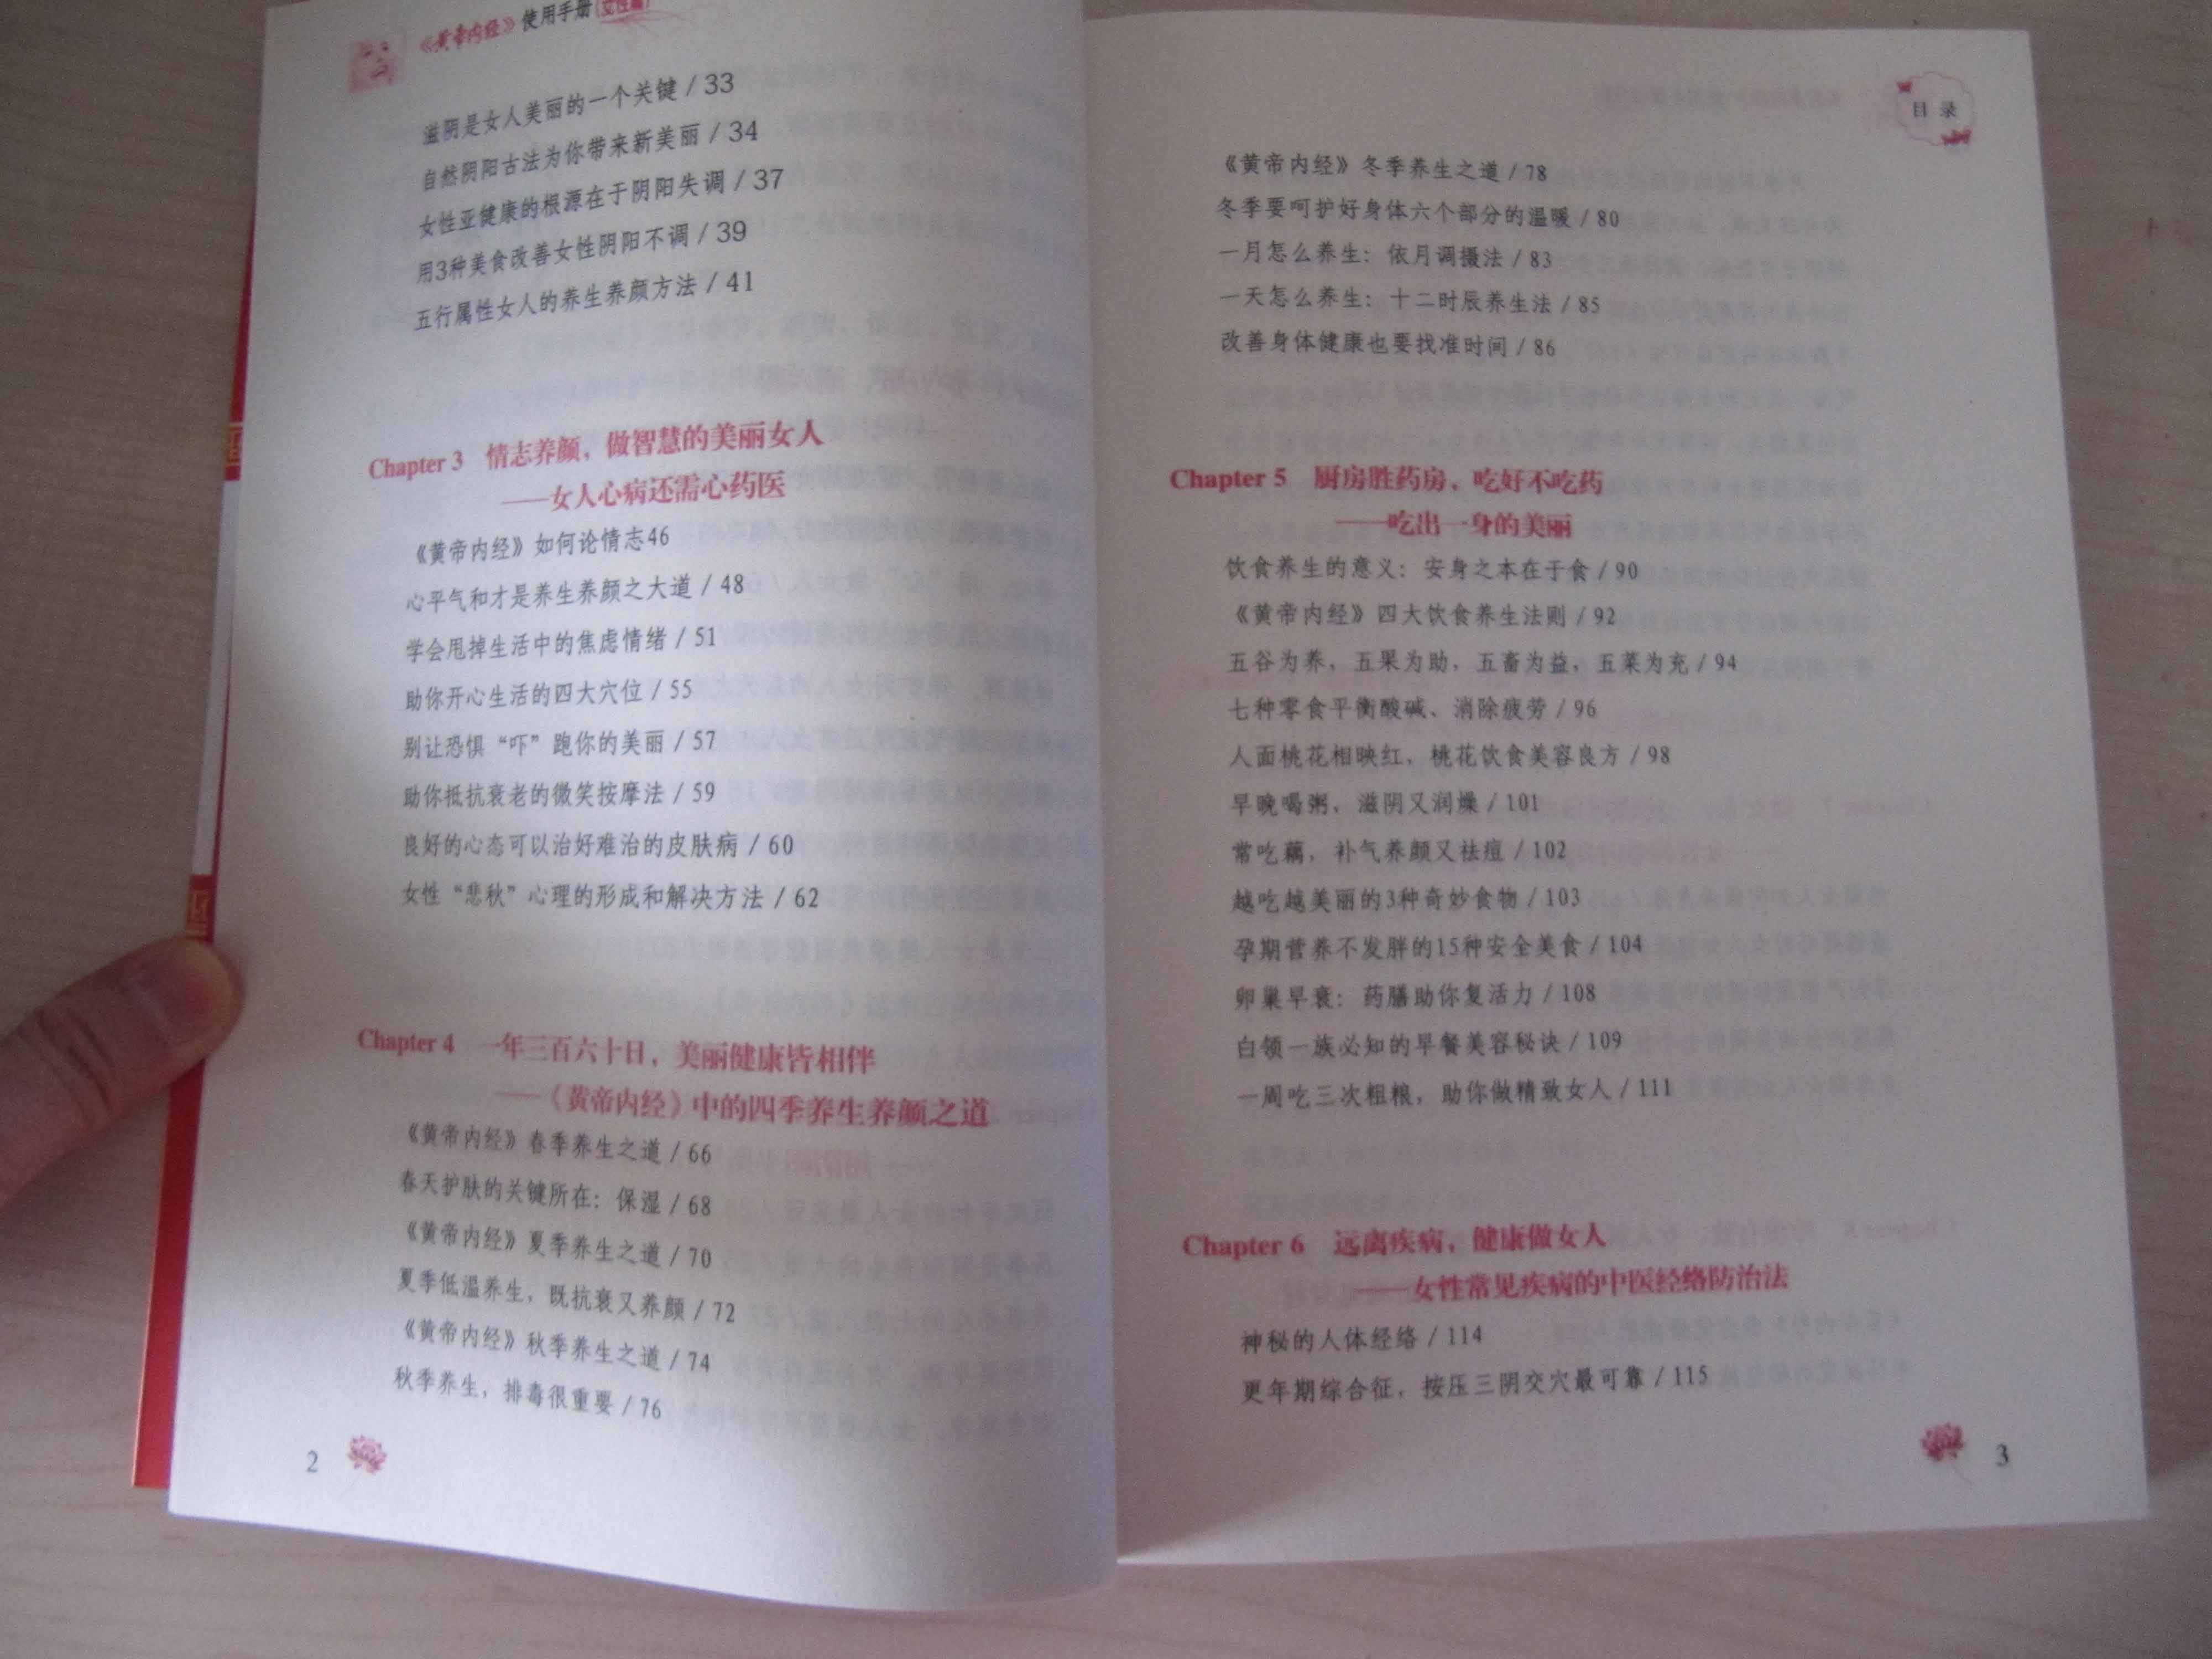 《黄帝内经》使用手册(女性篇)
滋阴是女人美丽的一个关键 / 33
自然阴阳古法为你带来新美丽 / 34
女性亚健康的根源在于阴阳失调 / 37
用3种美食改善女性阴阳不调 / 39
五行属性女人的养生养颜方法 / 41
Chapter 3 情志养颜，做智慧的美丽女人
——女人心病还需心药医
《黄帝内经》如何论情志46
心平气和才是养生养颜之大道 / 48
学会甩掉生活中的焦虑情绪 / 51
助你开心生活的四大穴位 / 55
别让恐惧“吓”跑你的美丽 / 57
助你抵抗衰老的微笑按摩法 / 59
良好的心态可以治好难治的皮肤病 / 60
女性“悲秋”心理的形成和解决方法 / 62
Chapter 4 一年三百六十日，美丽健康皆相伴
——《黄帝内经》中的四季养生养颜之道
《黄帝内经》春季养生之道 / 66
春天护肤的关键所在：保湿 / 68
《黄帝内经》夏季养生之道 / 70
夏季低温养生，既抗衰又养颜 / 72
《黄帝内经》秋季养生之道 / 74
秋季养生，排毒很重要 / 76
2
目录
《黄帝内经》冬季养生之道 / 78
冬季要呵护好身体六个部分的温暖 / 80
一月怎么养生：依月调摄法 / 83
一天怎么养生：十二时辰养生法 / 85
改善身体健康也要找准时间 / 86
Chapter 5 厨房胜药房，吃好不吃药
——吃出一身的美丽
饮食养生的意义：安身之本在于食 / 90
《黄帝内经》四大饮食养生法则 / 92
五谷为养，五果为助，五畜为益，五菜为充 / 94
七种零食平衡酸碱、消除疲劳 / 96
人面桃花相映红，桃花饮食美容良方 / 98
早晚喝粥，滋阴又润燥 / 101
常吃藕，补气养颜又祛痘 / 102
越吃越美丽的3种奇妙食物 / 103
孕期营养不发胖的15种安全美食 / 104
卵巢早衰：药膳助你复活力 / 108
白领一族必知的早餐美容秘诀 / 109
一周吃三次粗粮，助你做精致女人 / 111
Chapter 6 远离疾病，健康做女人
——女性常见疾病的中医经络防治法
神秘的人体经络 / 114
更年期综合征，按压三阴交穴最可靠 / 115
3